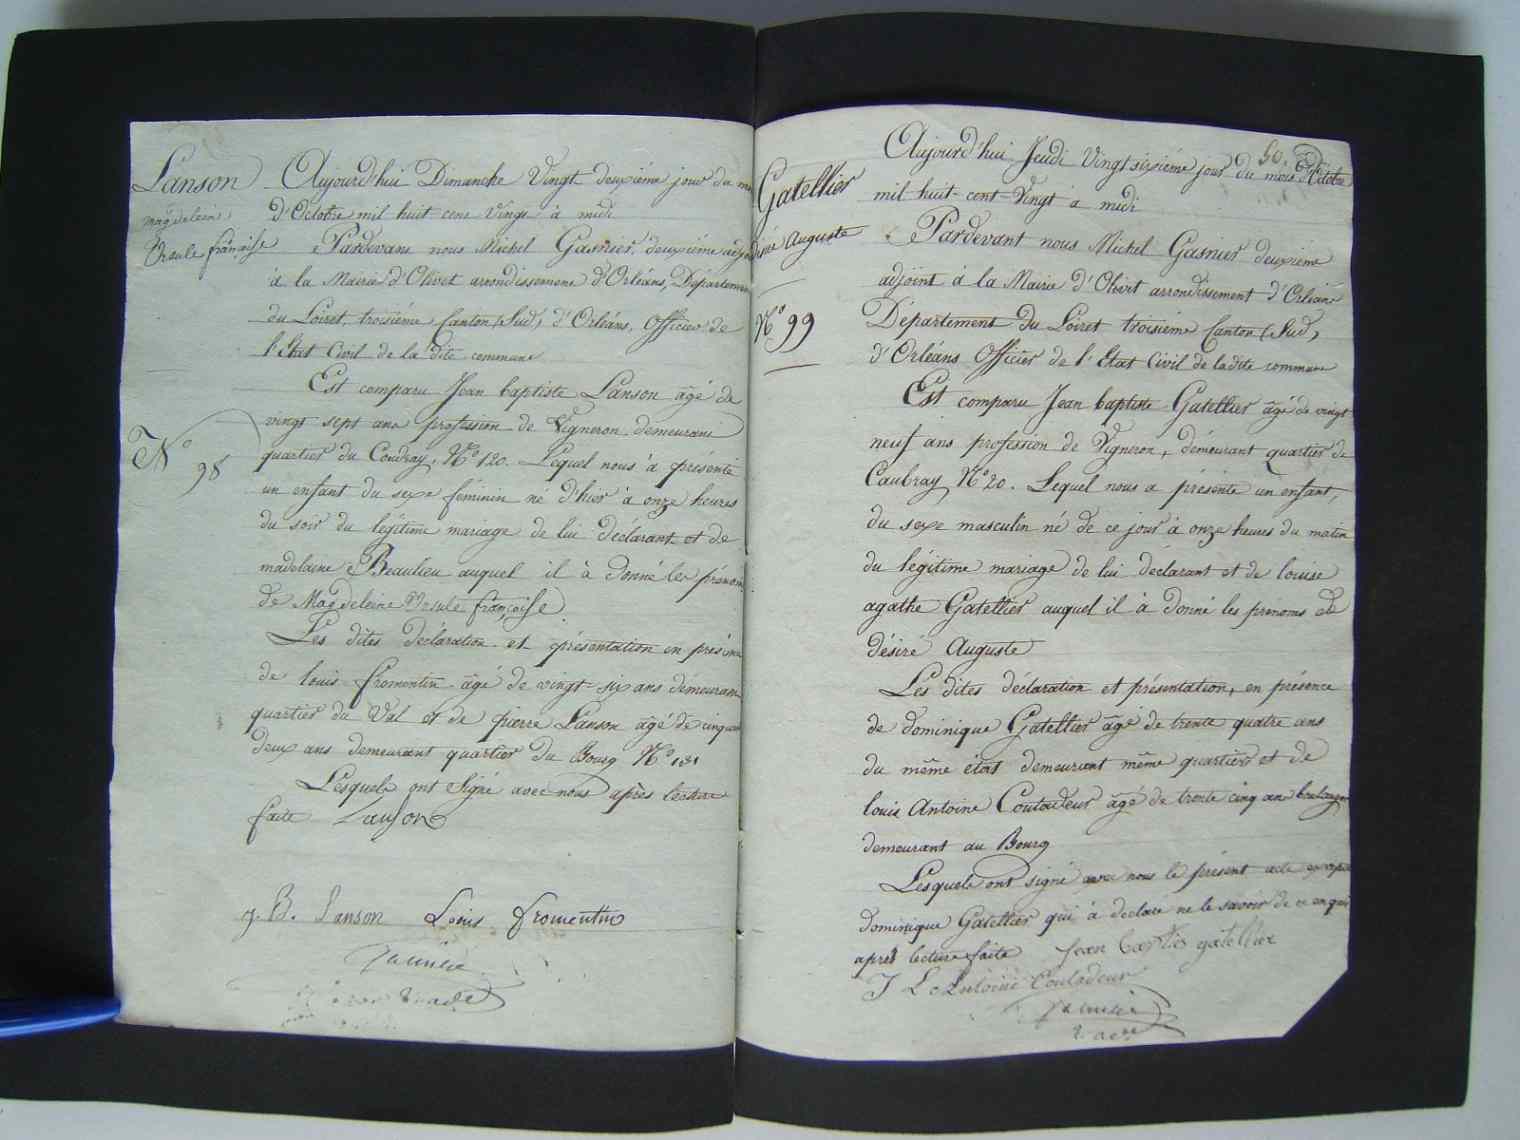 Lanson
magdelein
Ursule françoise
N° 98
Aujourd'hui Dimanche Vingt deuxième jour du m
D'Octobre mil huit cent Vingt à midi
Pardevant nous Michel Gasnier, deuxième adjoi
à la Mairie d'Olivet arrondissement d'Orléans, Départemen
du Loiret, troisième Canton (Sud) d'Orléans, Officier de
l'Etat Civil de la dite commune
Est comparu Jean baptiste Lanson âgé de
vingt sept ans profession de Vigneron demeurant
quartier du Coudray, N° 120. Lequel nous à présenté
un enfant du sexe féminin né d'hier à onze heures
du soir du légitime mariage de lui déclarant et de
madelaine Beaulieu auquel il à donné les prénom
de Magdeleine Ursule françoise
Les dites déclaration et présentation en présence
de louis fromentin âgé de vingt-six ans demeurant
quartier du Val et de pierre Lanson âgé de cinquan
deux ans demeurant quartier du Bourg N° 131
Lesquels ont Signé avec nous après lecture
faite Lanson
j. B. Lanson Louis fromentin
50.
Gatellier
désiré Auguste
N° 99
Aujourd'hui Jeudi Vingt sixième jour du mois d'Octobre
mil huit-cent-Vingt à midi
Pardevant nous Michel Gasnier deuxième
adjoint à la Mairie d'Olivet arrondissement d'Orléans
Département du Loiret troisième Canton (Sud)
d'Orléans Officier de l'Etat Civil de ladite commune
Est comparu Jean baptiste Gatellier âgé de vingt
neuf ans profession de Vigneron, demeurant quartier de
Caubray N° 20. Lequel nous a présenté un enfant,
du sexe masculin né de ce jour à onze heures du matin
du légitime mariage de lui déclarant et de louise
agathe Gatellier auquel il à donné les prénoms de
désiré Auguste
Les dites déclaration et présentation, en présence
de dominique Gatellier âgé de trente quatre ans
du même état demeurant même quartier et de
louis Antoine Coutadeur âgé de trente cinq ans boulanger
demeurant au Bourg
Lesquels ont signé avec nous le présent acte excepté
dominique Gatellier qui à déclaré ne le savoir de ce enquis
après lecture faite Jean Baptis gatellier
J L Antoine Coutadeur